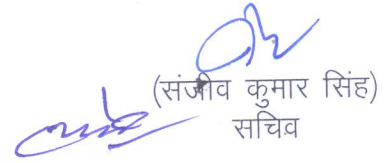 (संजीव कुमार सिंह)
सचिव